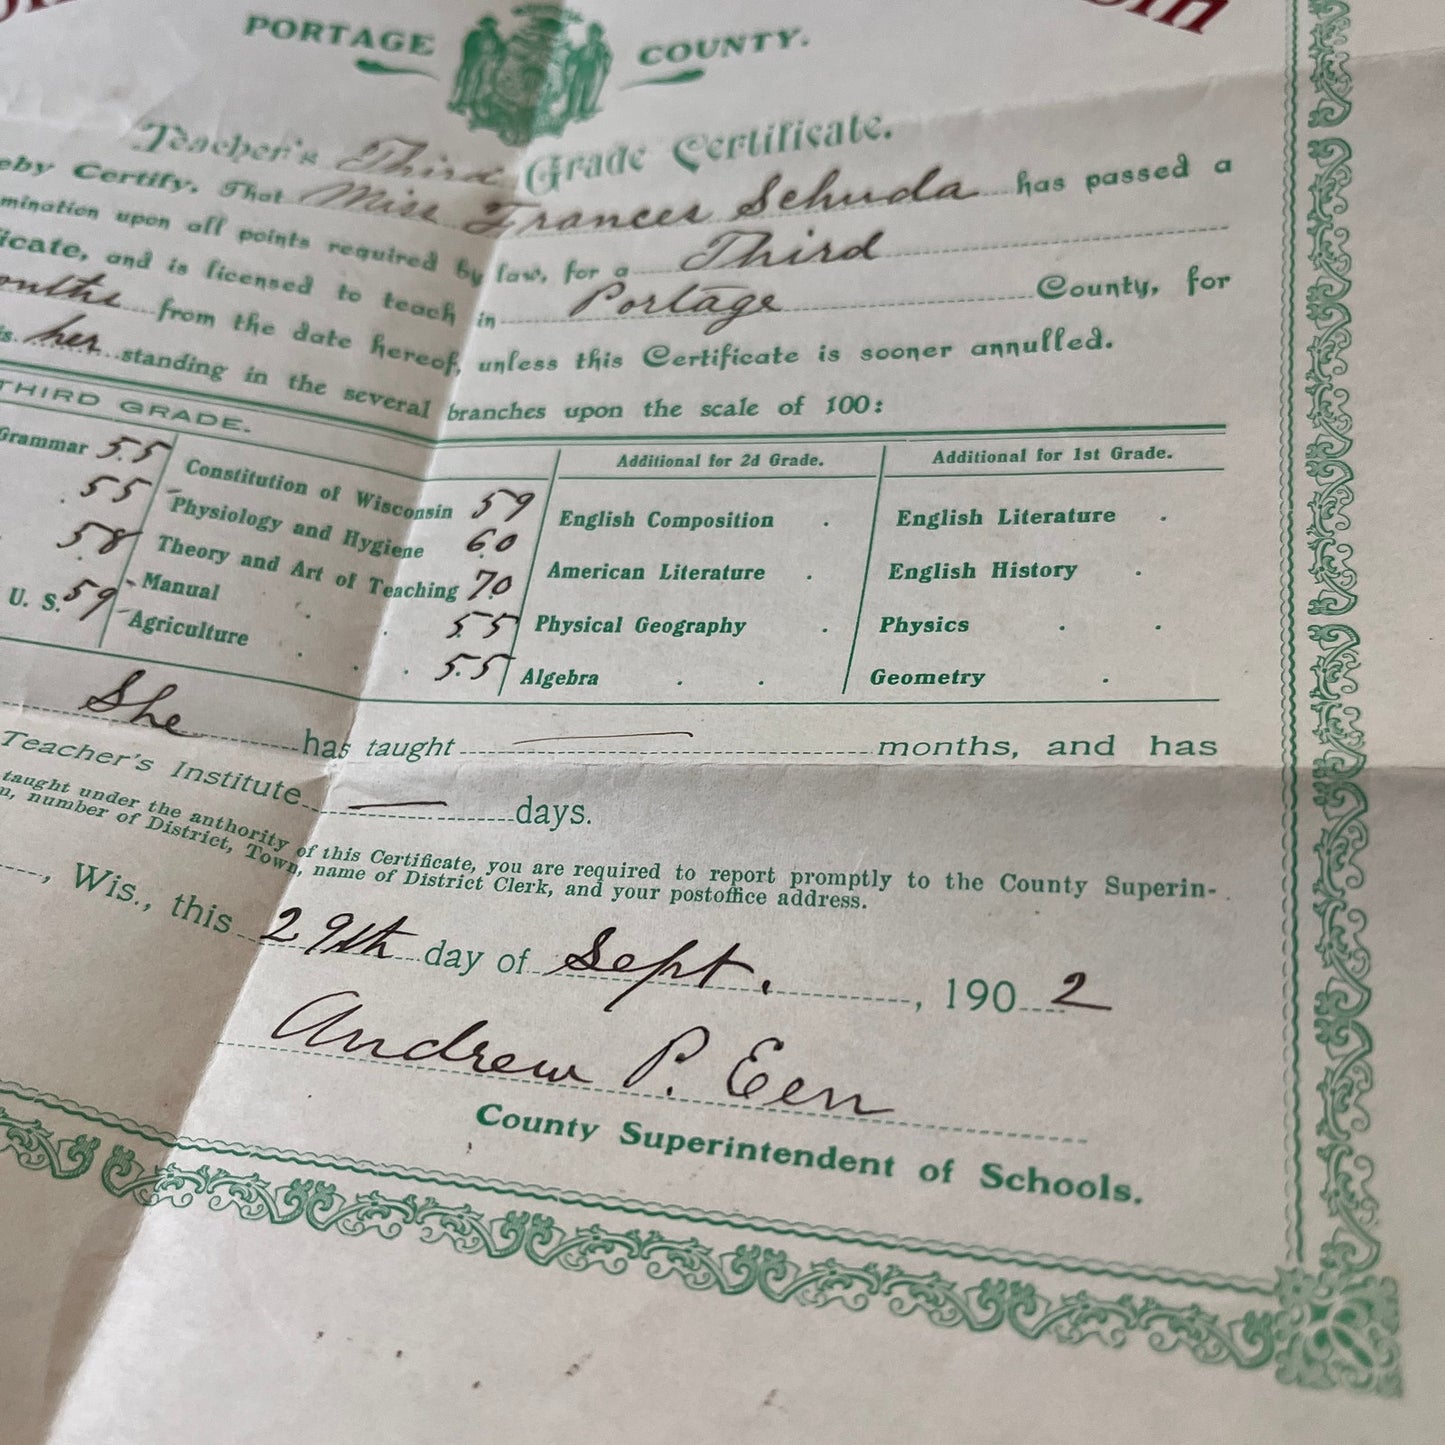 PORTAGE COUNTY.
Teacher's Third Grade Certificate.
eby Certify, That Miss Frances Schuda has passed a
mination upon all points required by law, for a Third
icate, and is licensed to teach in Portage County, for
onths from the date hereof, unless this Certificate is sooner annulled.
is her standing in the several branches upon the scale of 100:
THIRD GRADE.
Additional for 2d Grade. Additional for 1st Grade.
Grammar 55 Constitution of Wisconsin 59 English Composition . English Literature .
. 55 Physiology and Hygiene 60 American Literature . English History .
58 Theory and Art of Teaching 70 Physical Geography . Physics . .
U. S. 59 Manual . . 55 Algebra . . Geometry .
Agriculture . . . 55
She has taught — months, and has
Teacher's Institute — days.
taught under the anthority of this Certificate, you are required to report promptly to the County Superin-
n, number of District, Town, name of District Clerk, and your postoffice address.
, Wis., this 29th day of Sept. , 1902
Andrew P. Een
County Superintendent of Schools.